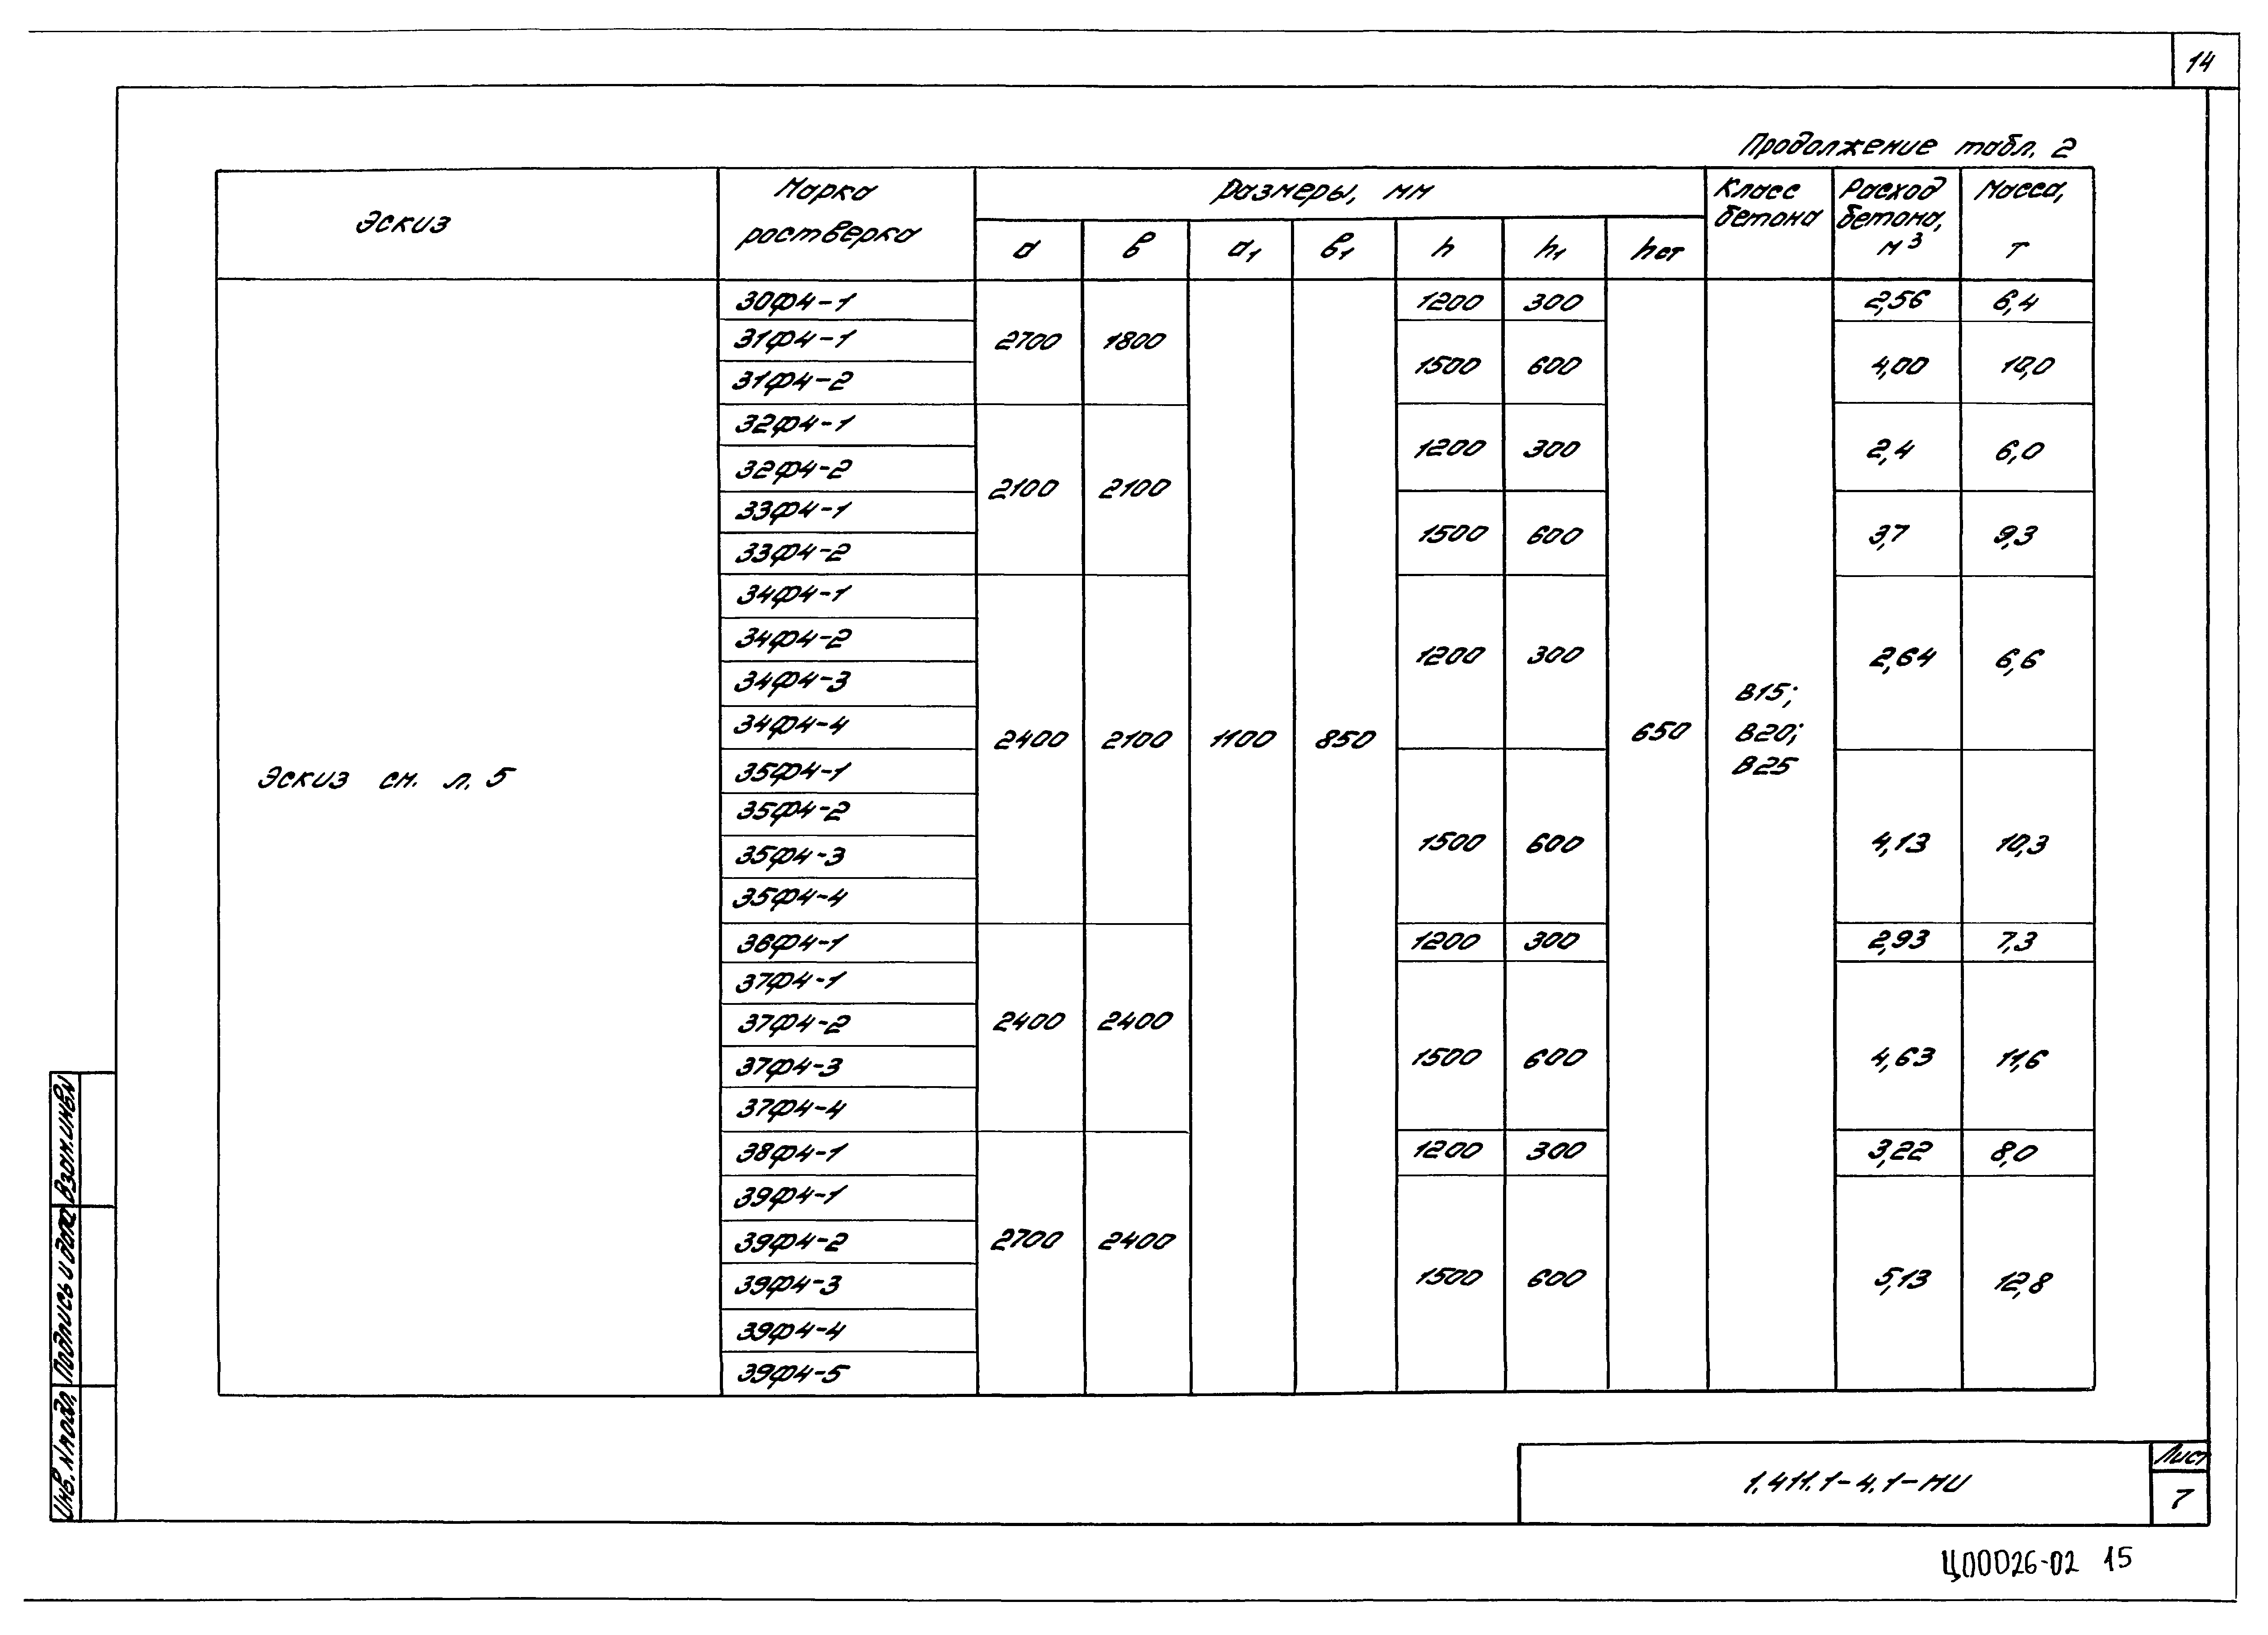 14
Продолжение табл. 2
Эскиз
Марка ростверка
Размеры, мм
Класс бетона
Расход бетона, м³
Масса, т
a
b
a1
b1
h
h1
hст
30Ф4-1 2700 1800 1200 300 2,56 6,4
31Ф4-1 1500 600 4,00 10,0
31Ф4-2
32Ф4-1 2100 2100 1200 300 2,4 6,0
32Ф4-2
33Ф4-1 1500 600 3,7 9,3
33Ф4-2
34Ф4-1 2400 2100 1200 300 2,64 6,6
34Ф4-2
34Ф4-3
34Ф4-4
1100 850 650 В15; В20; В25
Эскиз см. л. 5
35Ф4-1 1500 600 4,13 10,3
35Ф4-2
35Ф4-3
35Ф4-4
36Ф4-1 2400 2400 1200 300 2,93 7,3
37Ф4-1 1500 600 4,63 11,6
37Ф4-2
37Ф4-3
37Ф4-4
38Ф4-1 2700 2400 1200 300 3,22 8,0
39Ф4-1 1500 600 5,13 12,8
39Ф4-2
39Ф4-3
39Ф4-4
39Ф4-5
Взам.инв.N
Подпись и дата
Инв. N подл.
1.411.1-4.1-МИ
Лист
7
Ц00026-02 15